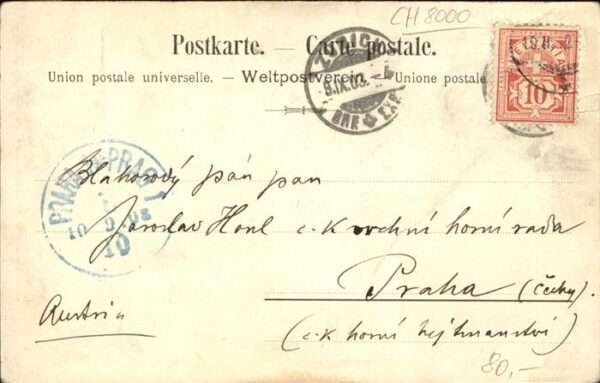 CH 8000
Postkarte. — Carte postale.
Union postale universelle. — Weltpostverein. — Unione postale
ZÜRICH
9.IX.03.
BRF EXP.
10
PRAHA PRAG 1
10 9 03
10
Blahorodý pán pan
Jaroslav Honl c.k. vrchní horní rada
Praha (Čechy).
Austria
(c.k. horní hejtmanství)
80,-